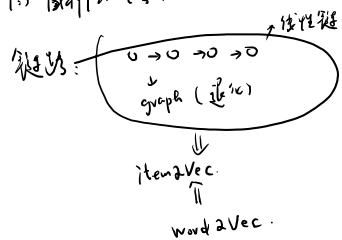 线性链
链路:
graph (退化)
item2Vec.
word2Vec.